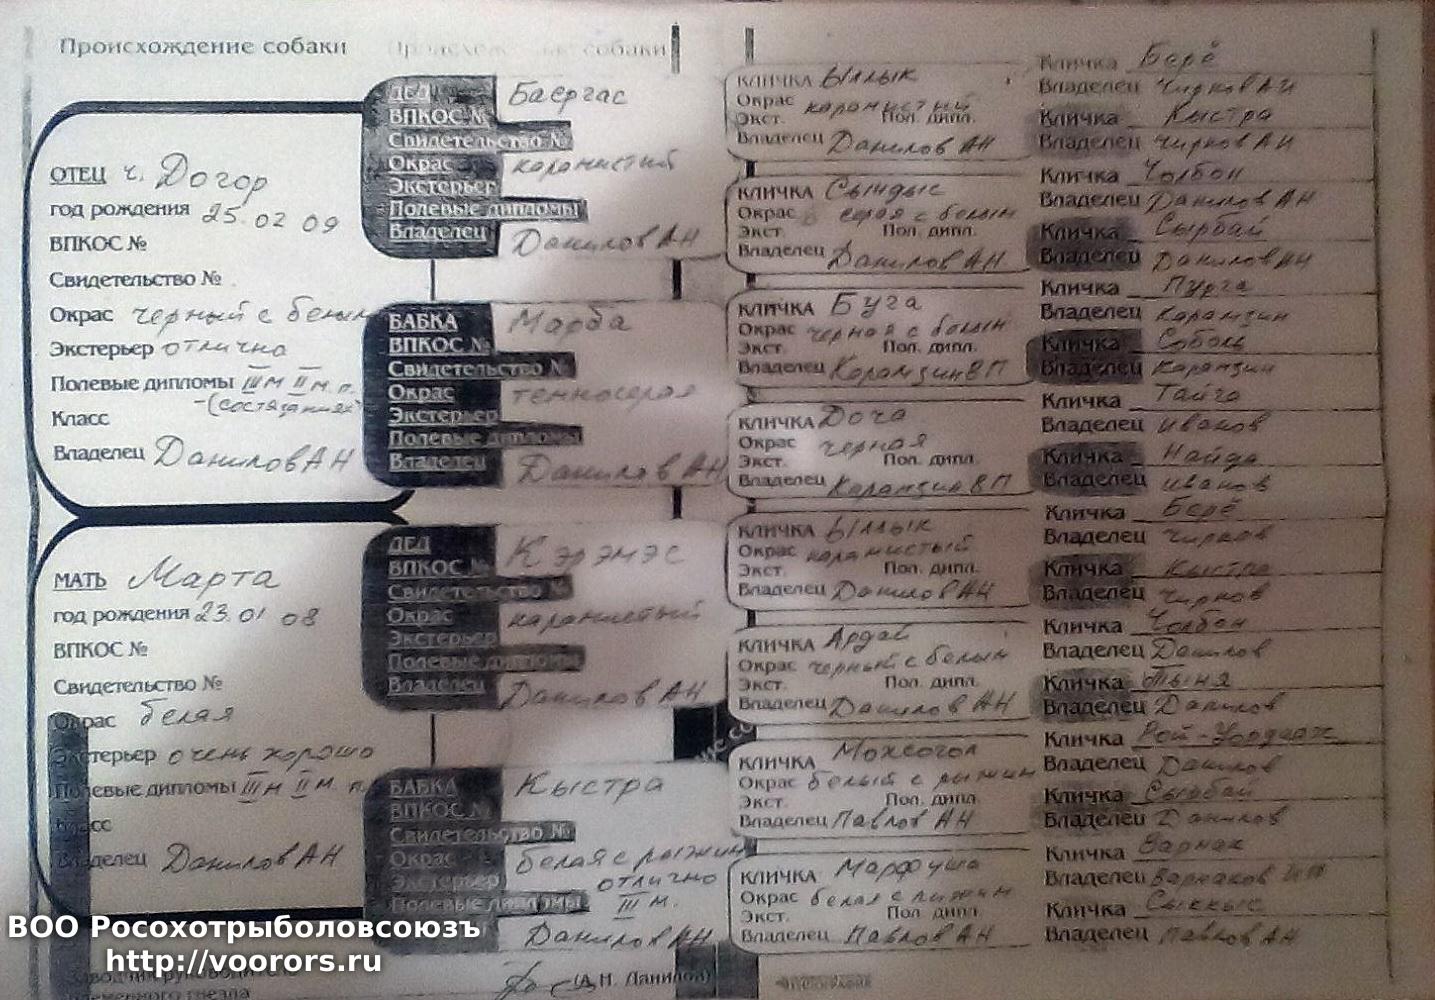 Происхождение собаки
ОТЕЦ ч. Догор
год рождения 25.02 09
ВПКОС №
Свидетельство №
Окрас черный с белым
Экстерьер отлично
Полевые дипломы III м II м. п.
-(состязаниях)
Класс
Владелец Данилов АН
МАТЬ Марта
год рождения 23.01 08
ВПКОС №
Свидетельство №
Окрас белая
Экстерьер очень хорошо
Полевые дипломы III м II м. п.
Класс
Владелец Данилов АН
Происхождение собаки
ДЕД Баергас
ВПКОС №
Свидетельство №
Окрас карамистый
Экстерьер
Полевые дипломы
Владелец Данилов АН
БАБКА Марба
ВПКОС №
Свидетельство №
Окрас темносерая
Экстерьер
Полевые дипломы
Владелец Данилов АН
ДЕД Кэрэмэс
ВПКОС №
Свидетельство №
Окрас карамистый
Экстерьер
Полевые дипломы
Владелец Данилов АН
БАБКА Кыстра
ВПКОС №
Свидетельство №
Окрас белая с рыжим
Экстерьер отлично
Полевые дипломы III м.
Данилов АН
КЛИЧКА Ыллык
Окрас карамистый
Экст. Пол. дипл.
Владелец Данилов АН
КЛИЧКА Сындыс
Окрас серая с белым
Экст. Пол. дипл.
Владелец Данилов АН
КЛИЧКА Буга
Окрас черная с белым
Экст. Пол. дипл.
Владелец Карамзин ВП
КЛИЧКА Доча
Окрас черная
Экст. Пол. дипл.
Владелец Карамзин ВП
КЛИЧКА Ыллык
Окрас карамистый
Экст. Пол. дипл.
Владелец Данилов АН
КЛИЧКА Ардай
Окрас черный с белым
Экст. Пол. дипл.
Владелец Данилов АН
КЛИЧКА Мохсогол
Окрас белый с рыжим
Экст. Пол. дипл.
Владелец Павлов АН
КЛИЧКА Марфуша
Окрас белая с рыжим
Экст. Пол. дипл.
Владелец Павлов АН
Кличка Берё
Владелец Чирков АИ
Кличка Кыстра
Владелец Чирков АИ
Кличка Чолбон
Владелец Данилов АН
Кличка Сырбай
Владелец Данилов АН
Кличка Пурга
Владелец Карамзин
Кличка Соболь
Владелец Карамзин
Кличка Тайга
Владелец Иванов
Кличка Найда
Владелец Иванов
Кличка Берё
Владелец Чирков
Кличка Кыстра
Владелец Чирков
Кличка Чолбон
Владелец Данилов
Кличка Тыня
Владелец Данилов
Кличка
Владелец Данилов
Кличка Сырбай
Владелец Данилов
Кличка Варнак
Владелец Варнаков
Кличка Сыккыс
Владелец Павлов АН
племенного гнезда (А.Н. Данилов)
ВОО Росохотрыболовсоюзъ
http://voorors.ru